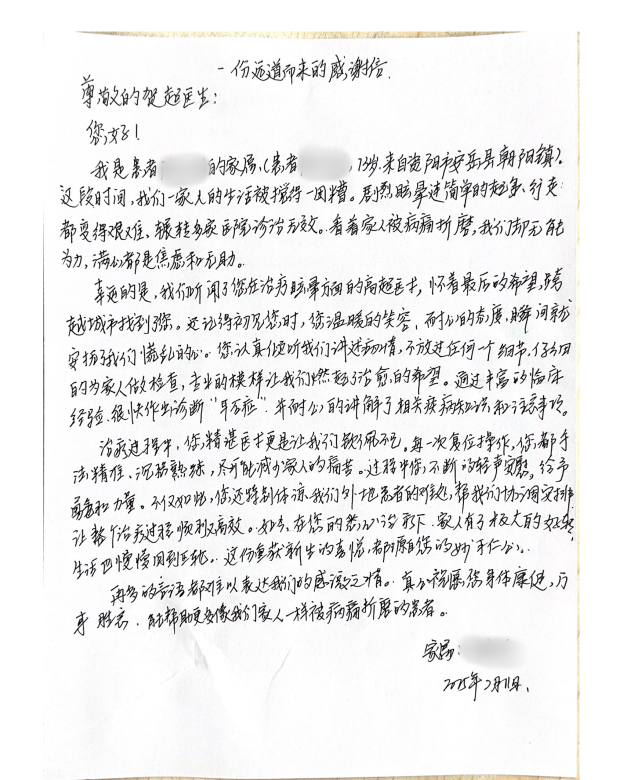 一份远道而来的感谢信.
尊敬的贺超医生:
您好!
我是患者 的家属,(患者 ,13岁,来自资阳市安岳县朝阳镇)。
这段时间,我们一家人的生活被搅得一团糟。剧烈眩晕连简单的起身、行走
都变得艰难、辗转多家医院诊治无效。看着家人被病痛折磨,我们却无能
为力,满心都是焦虑和无助。
幸运的是,我们听闻了您在治疗眩晕方面的高超医术,怀着最后的希望,跨
越城市找到了您。还记得初见您时,您温暖的笑容、耐心的态度,瞬间就
安抚了我们慌乱的心。您认真倾听我们讲述病情,不放过任何一个细节,仔细
的为家人做检查,专业的模样让我们燃起了治愈的希望。通过丰富的临床
经验、很快作出诊断“耳石症”并耐心的讲解了相关疾病知识和注意事项。
治疗过程中,您精湛医术更是让我们钦佩不已。每一次复位操作,您都手
法精准、沉稳熟练,尽可能减少家人的痛苦。过程中您,不断的轻声安慰,给予
勇气和力量。不仅如此,您还特别体谅我们外地患者的难处,帮我们协调安排
让整个治疗过程顺利又高效。如今,在您的悉心治疗下,家人有了极大的好转,
生活也慢慢回到正轨。这份重获新生的喜悦,都源自您的妙手仁心。
再多的言语都难以表达我们的感激之情。真心祝愿您身体康健,万
事胜意,能帮助更多像我们家人一样被病痛折磨的患者。
家属:
2025年2月11日.